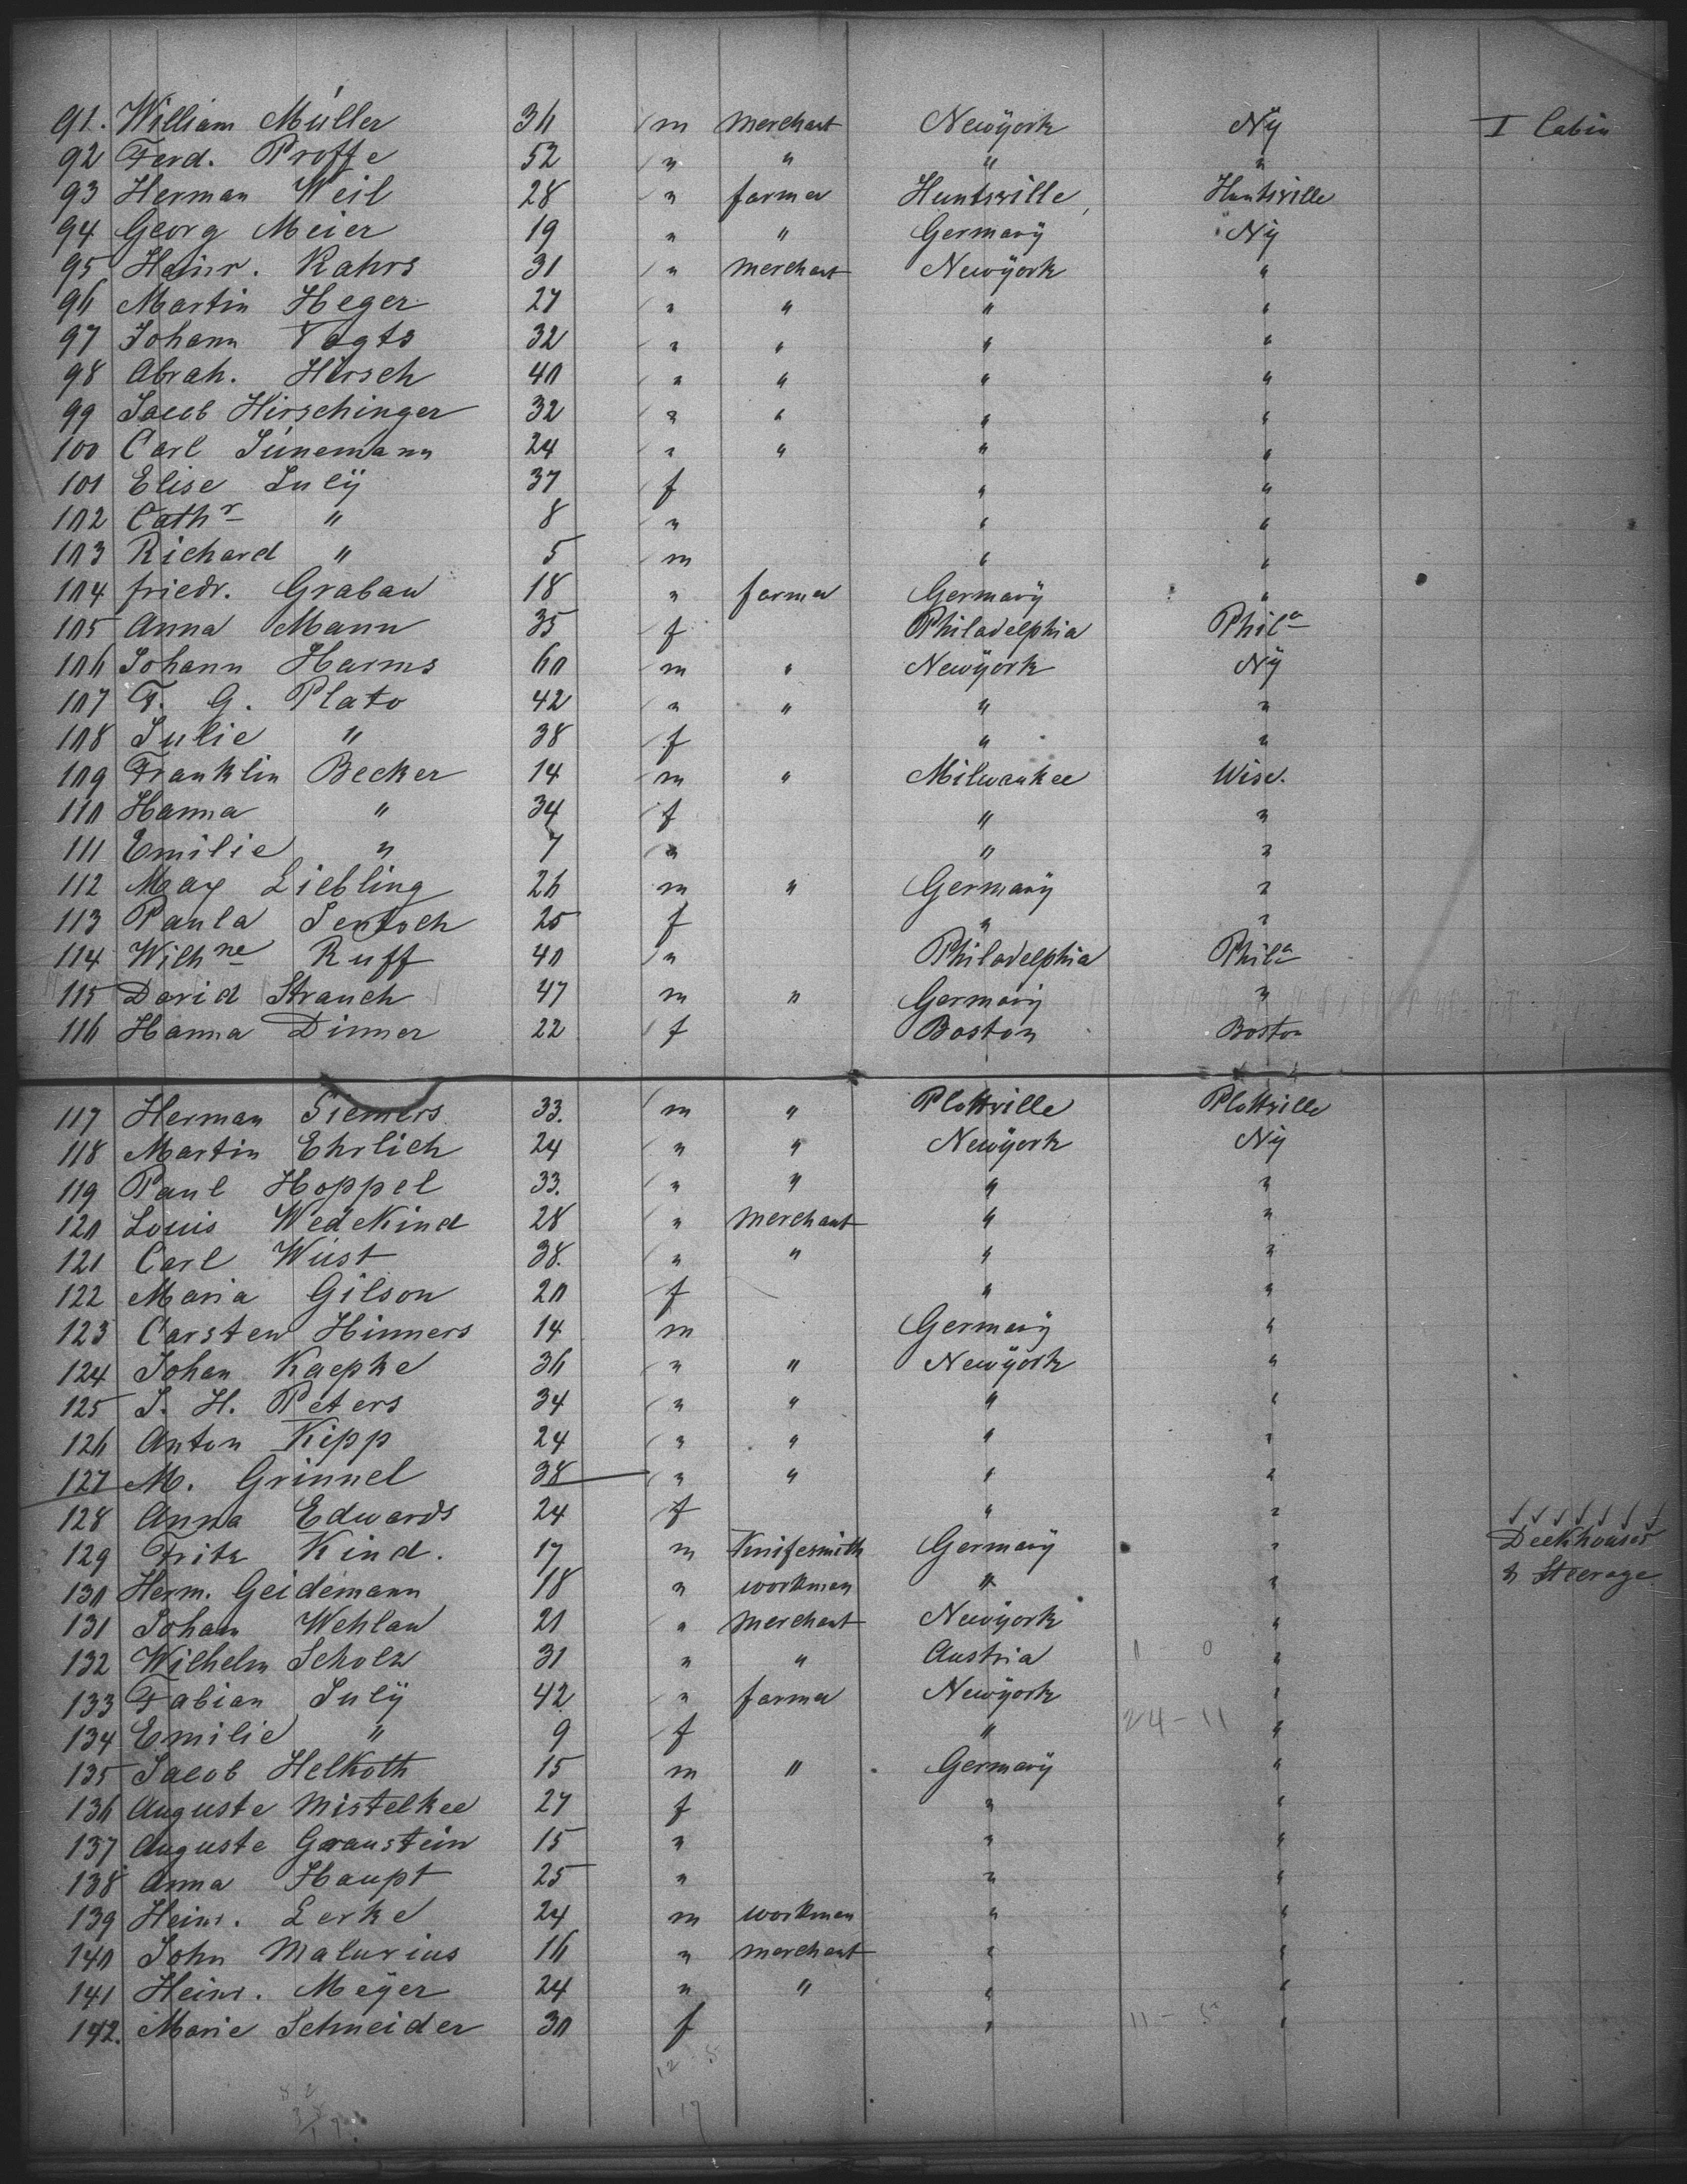 91. William Müller 36 m merchant Newÿork Nÿ I Cabin
92 Ferd. Proffe 52 " " " "
93 Herman Weil 28 " farmer Huntsville, Huntsville
94 Georg Meier 19 " " Germanÿ Nÿ
95 Heinr. Kahrs 31 " merchant Newÿork "
96 Martin Heger 27 " " " "
97 Johann Vogts 32 " " " "
98 Abrah. Hirsch 40 " " " "
99 Jacob Hirschinger 32 " " " "
100 Carl Sünemann 24 " " " "
101 Elise Julÿ 37 f " "
102 Cathr " 8 " " "
103 Richard " 5 m " "
104 friedr. Grabau 18 " farmer Germanÿ "
105 Anna Mann 35 f Philadelphia Phila
106 Johann Harms 60 m " Newÿork Nÿ
107 F. G. Plato 42 " " " "
108 Julie " 38 f " "
109 Franklin Becker 14 m " Milwaukee Wisc.
110 Hanna " 34 f " "
111 Emilie " 7 " " "
112 Max Liebling 26 m " Germanÿ "
113 Paula 25 f " "
114 Wilhne Ruff 40 " Philadelphia Phila
115 David Strauch 47 m " Germanÿ "
116 Hanna Dinner 22 f Boston Boston
117 Herman Siemers 33. m " Plattville Plattville
118 Martin Ehrlich 24 " " Newÿork Nÿ
119 Paul Hoppel 33. " " " "
120 Louis Wedekind 28 " merchant " "
121 Carl Wüst 38. " " " "
122 Maria Gilson 20 f " "
123 Carsten Hinners 14 m Germanÿ "
124 Johan Kaepke 36 " " Newÿork "
125 J. H. Peters 34 " " " "
126 Anton Kipp 24 " " " "
127 M. Grinnel 38 " " " "
128 Anna Edwards 24 f " "
129 Fritz Kind. 17 m Knifesmith Germanÿ " Deckhouses
130 Herm. Geidemann 18 " workman " " & Steerage
131 Johan Wehlau 21 " merchant Newÿork "
132 Wilhelm Scholz 31 " " Austria "
133 Fabian Julÿ 42 " farmer Newÿork "
134 Emilie " 9 f " 24-11 "
135 Jacob Helkoth 15 m " Germanÿ "
136 Auguste Mistelkee 27 f " "
137 Auguste Graustein 15 " " "
138 Anna Haupt 25 " " "
139 Heinr. Lerke 24 m workman " "
140 John Malurius 16 " merchant " "
141 Heinr. Meÿer 24 " " " "
142. Marie Schneider 30 f " 11-5 "
12-5
17